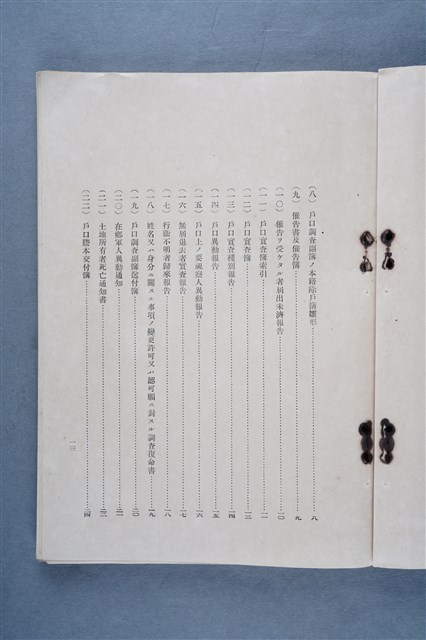 (八) 戶口調査副簿ノ本籍除戶簿雛形……八
(九) 催告書及催告簿……九
(一〇) 催告ヲ受ケタル者屆出未濟報告……一〇
(一一) 戶口實査簿索引……一一
(一二) 戶口實査簿……一三
(一三) 戶口實査種別報告……一四
(一四) 戶口異動報告……一五
(一五) 戶口上ノ要視察人異動報告……一六
(一六) 無屆退去者實査報告……一七
(一七) 行衞不明者歸來報告……一八
(一八) 姓名又ハ身分ニ關スル事項ノ變更許可又ハ認可願ニ對スル調査復命書……一九
(一九) 戶口調査副簿送付簿……二〇
(二〇) 在鄕軍人異動通知
(二一) 土地所有者死亡通知書
(二二) 戶口謄本交付簿……二四
一三